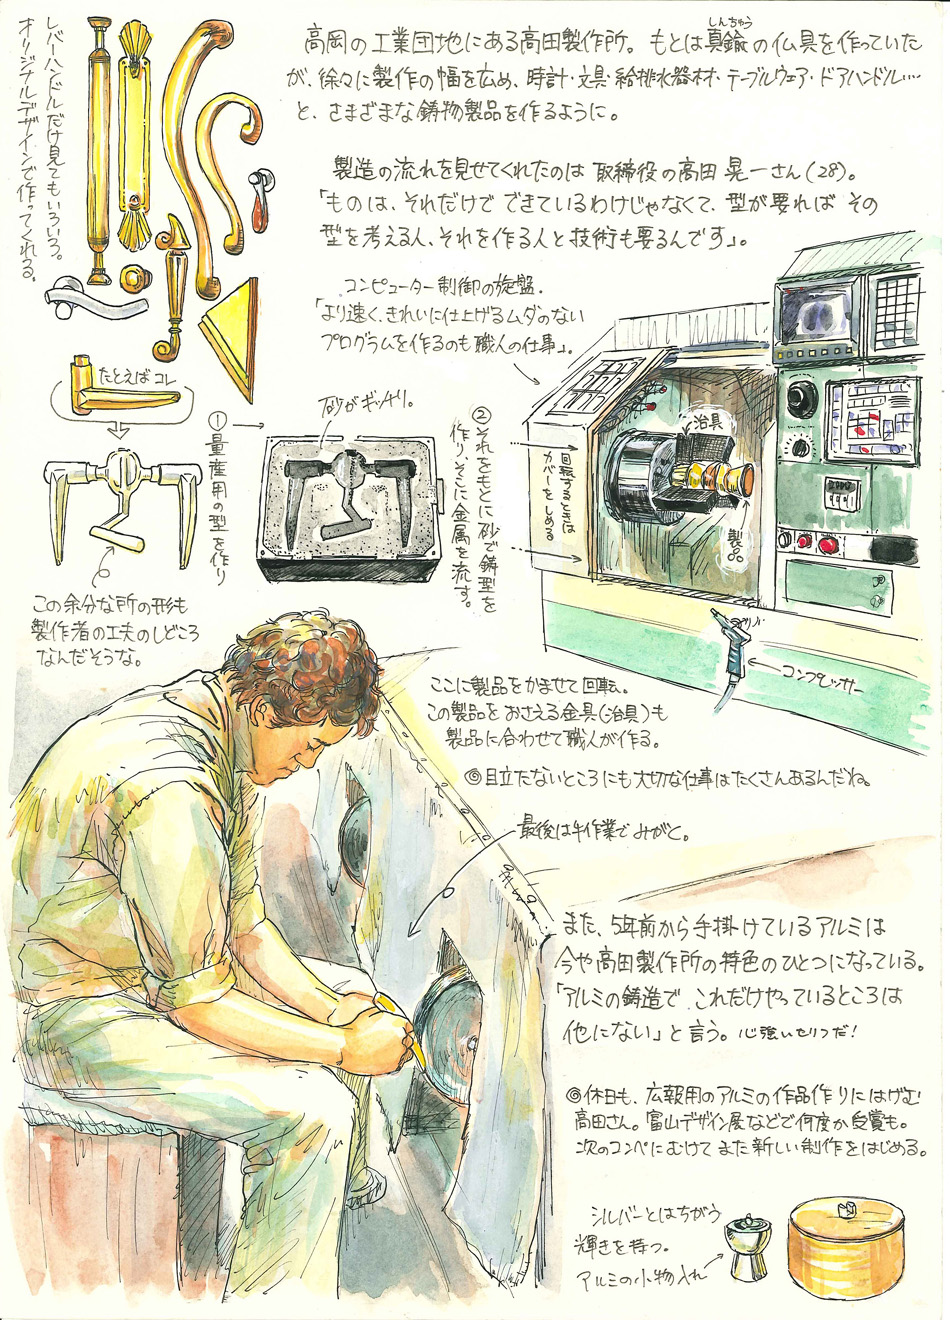 高岡の工業団地にある高田製作所。もとは真鍮の仏具を作っていた
しんちゅう
が、徐々に製作の幅を広め、時計・文具・給排水器材・テーブルウェア・ドアハンドル‥‥
と、さまざまな鋳物製品を作るように。
製造の流れを見せてくれたのは 取締役の高田晃一さん(28)。
「ものは、それだけで できているわけじゃなくて、型が要れば その
型を考える人、それを作る人と技術も要るんです」。
レバーハンドルだけ見てもいろいろ。
オリジナルデザインで作ってくれる。
コンピューター制御の旋盤.
「より速く、きれいに仕上げるムダのない
プログラムを作るのも職人の仕事」。
たとえばコレ
①量産用の型を作り
砂がギッチリ。
②それをもとに砂で鋳型を
作り、そこに金属を流す。
この余分な所の形も
製作者の工夫のしどころ
なんだそうな。
治具
回転するときは
カバーをしめる
製品
コンプレッサー
ここに製品をかませて回転。
この製品をおさえる金具(治具)も
製品に合わせて職人が作る。
◎目立たないところにも大切な仕事はたくさんあるんだね。
最後は手作業でみがく。
また、5年前から手掛けているアルミは
今や高田製作所の特色のひとつになっている。
「アルミの鋳造で、これだけやっているところは
他にない」と言う。心強いひとつだ!
◎休日も、広報用のアルミの作品作りにはげむ
高田さん。富山デザイン展などで何度か受賞も。
次のコンペにむけてまた新しい制作をはじめる。
シルバーとはちがう
輝きを持つ。
アルミの小物入れ